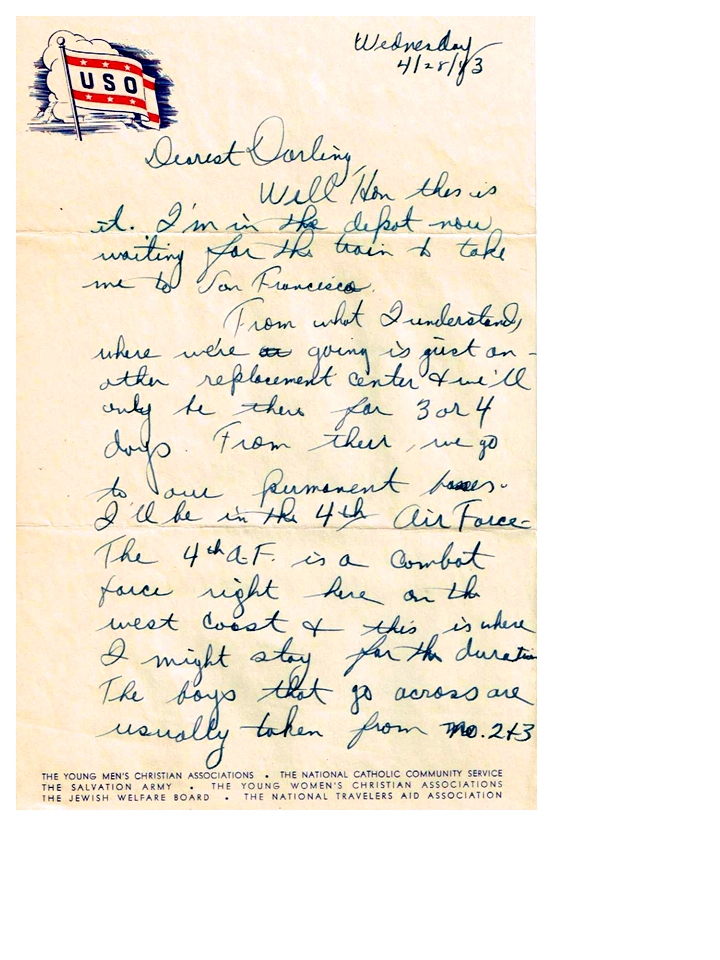 Wednesday
4/28/43
USO
Dearest Darling,
Well Hon this is
it. I'm in the depot now
waiting for the train to take
me to San Francisco.
From what I understand,
where we're going is just an-
other replacement center & we'll
only be there for 3 or 4
days. From there, we go
to our permanent bases.
I'll be in the 4th Air Force.
The 4th A.F. is a combat
force right here on the
west coast & this is where
I might stay for the duration
The boys that go across are
usually taken from no. 2+3
THE YOUNG MEN'S CHRISTIAN ASSOCIATIONS • THE NATIONAL CATHOLIC COMMUNITY SERVICE
THE SALVATION ARMY • THE YOUNG WOMEN'S CHRISTIAN ASSOCIATIONS
THE JEWISH WELFARE BOARD • THE NATIONAL TRAVELERS AID ASSOCIATION